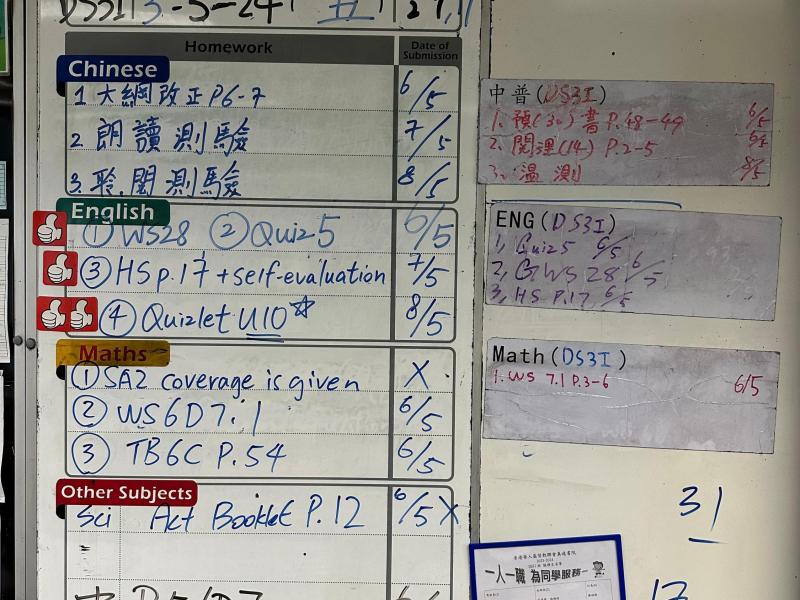 3-5-24
Homework
Date of Submission
Chinese
1 大綱改正 P6-7 6/5
2. 朗讀測驗 7/5
3. 聆.閱測驗 8/5
English
① WS28 ② Quiz 5 6/5
③ HS p.17 + self-evaluation 7/5
④ Quizlet U10 ☆ 8/5
Maths
① SA2 coverage is given X
② WS6D7.1 6/5
③ TB6C P.54 6/5
Other Subjects
Sci Act Booklet P.12 6/5 X
中普(DS3I)
1. 預(30) 書 P.48-49 6/5
2. 閱理(14) P.2-5 6/5
3. 溫測 8/5
ENG(DS3I)
1, Quiz5 6/5
2, GWS 28 6/5
3, HS P.17 6/5
Math(DS3I)
1. WS 7.1 P.3-6 6/5
31
17
一人一職 為同學服務